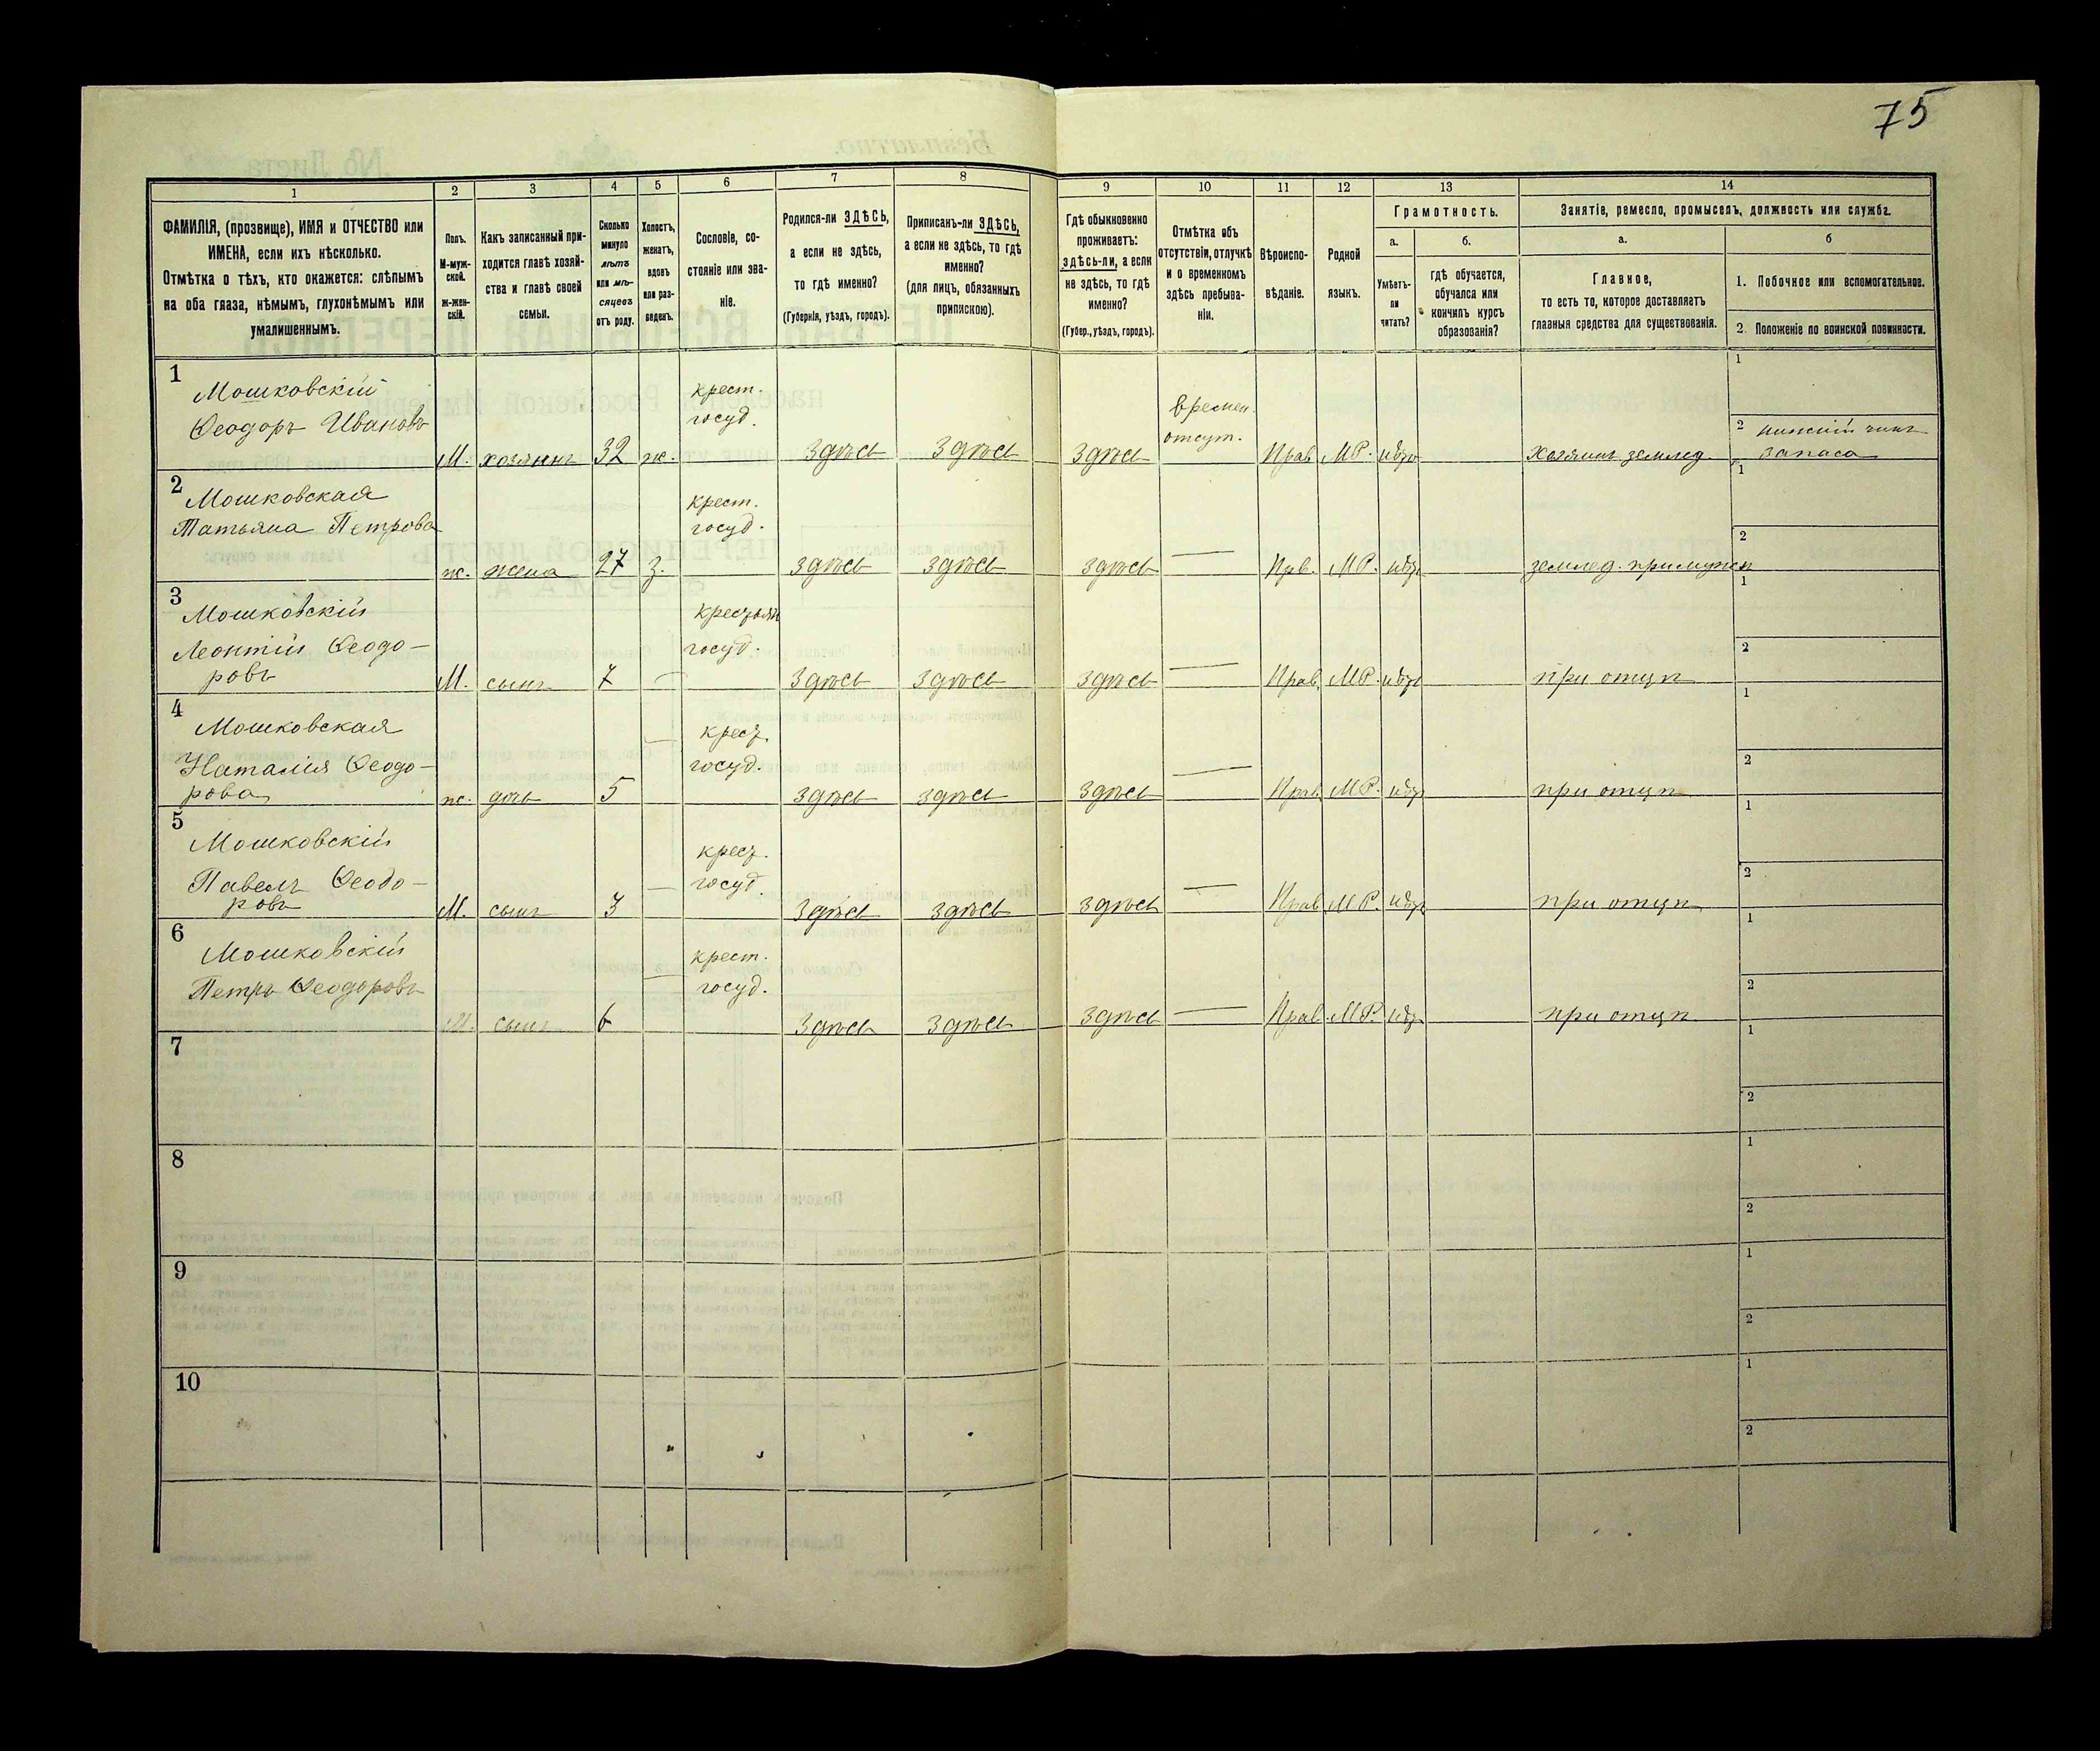 75
1
2
3
4
5
6
7
8
9
10
11
12
13
14
ФАМИЛІЯ, (прозвище), ИМЯ и ОТЧЕСТВО или
ИМЕНА, если ихъ нѣсколько.
Отмѣтка о тѣхъ, кто окажется: слѣпымъ
на оба глаза, нѣмымъ, глухонѣмымъ или
умалишеннымъ.
Полъ.
М-муж-
ской.
Ж-жен-
скій.
Какъ записанный при-
ходится главѣ хозяй-
ства и главѣ своей
семьи.
Сколько
минуло
лѣтъ
или мѣ-
сяцевъ
отъ роду.
Холостъ,
женатъ,
вдовъ
или раз-
веденъ.
Сословіе, со-
стояніе или зва-
ніе.
Родился-ли ЗДѢСЬ,
а если не здѣсь,
то гдѣ именно?
(Губернія, уѣздъ, городъ).
Приписанъ-ли ЗДѢСЬ,
а если не здѣсь, то гдѣ
именно?
(для лицъ, обязанныхъ
припискою).
Гдѣ обыкновенно
проживаетъ:
здѣсь-ли, а если
не здѣсь, то гдѣ
именно?
(Губер., уѣздъ, городъ).
Отмѣтка объ
отсутствіи, отлучкѣ
и о временномъ
здѣсь пребыва-
ніи.
Вѣроиспо-
вѣданіе.
Родной
языкъ.
Грамотность.
а.
Умѣетъ-
ли
читать?
б.
гдѣ обучается,
обучался или
кончилъ курсъ
образованія?
Занятіе, ремесло, промыселъ, должность или служба.
а.
Главное,
то есть то, которое доставляетъ
главныя средства для существованія.
б
1. Побочное или вспомогательное.
2. Положеніе по воинской повинности.
1
Мошковскій
Ѳеодоръ Ивановъ
М. хозяинъ 32 ж.
крест.
госуд.
здѣсь здѣсь здѣсь
времен.
отсут.
Прав. МР.
Хозяинъ землед.
1
2 нижній чинъ
запаса
2
Мошковская
Татьяна Петрова
ж. жена 27 з.
крест.
госуд.
здѣсь здѣсь здѣсь — Прав. МР.
землед. при мужѣ
1
2
3
Мошковскій
Леонтій Ѳеодо-
ровъ
М. сынъ 7 —
крестьян
госуд.
здѣсь здѣсь здѣсь — Прав. МР.
при отцѣ
1
2
4
Мошковская
Наталія Ѳеодо-
рова
ж. дочь 5 —
крест.
госуд.
здѣсь здѣсь здѣсь — Прав. МР.
при отцѣ
1
2
5
Мошковскій
Павелъ Ѳеодо-
ровъ
М. сынъ 3 —
крест.
госуд.
здѣсь здѣсь здѣсь — Прав. МР.
при отцѣ
1
2
6
Мошковскій
Петръ Ѳеодоровъ
М. сынъ 6 —
крест.
госуд.
здѣсь здѣсь здѣсь — Прав. МР.
при отцѣ
1
2
7
1
2
8
1
2
9
1
2
10
1
2